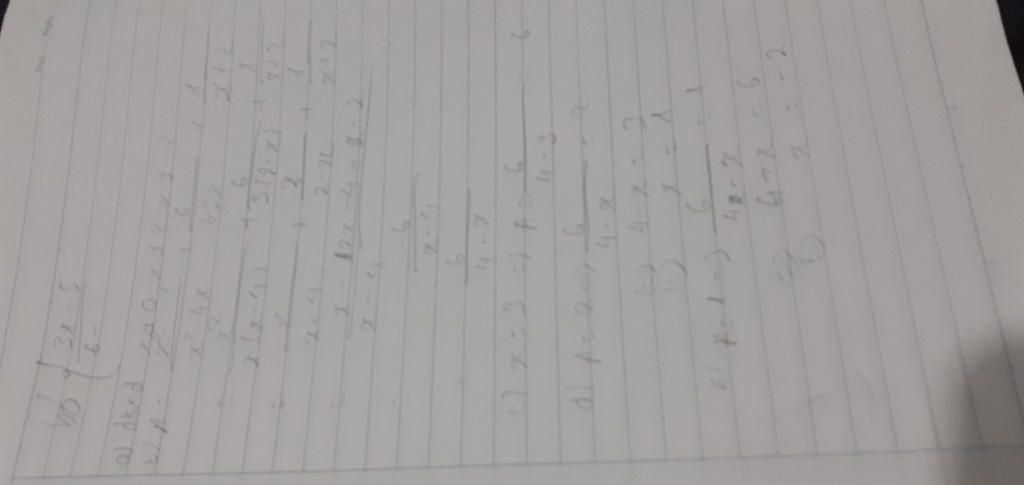 a) đkxđ x ≠ 0, x ≠ 2, x ≠ -2
b) A = x²/(x² - 4x) + 6/(6 - 3x) + 1/(x+2)
= x²/(x(x-4)) + 6/(3(2-x)) + 1/(x+2)
= x/(x-4) + 2/(2-x) + 1/(x+2)
= (x - 2x - 4 + x - 2)/(x-4)
= -6/(x-4)
= 6/(4-x)
c) x = 3 => A = 6/(4-3) = 6
d) A = 2 => 6/(4-x) = 2
<=> 4 - x = 3
<=> x = 1
e) A = 1 => 6/(4-x) = 1
<=> 4 - x = 6
<=> x = -2